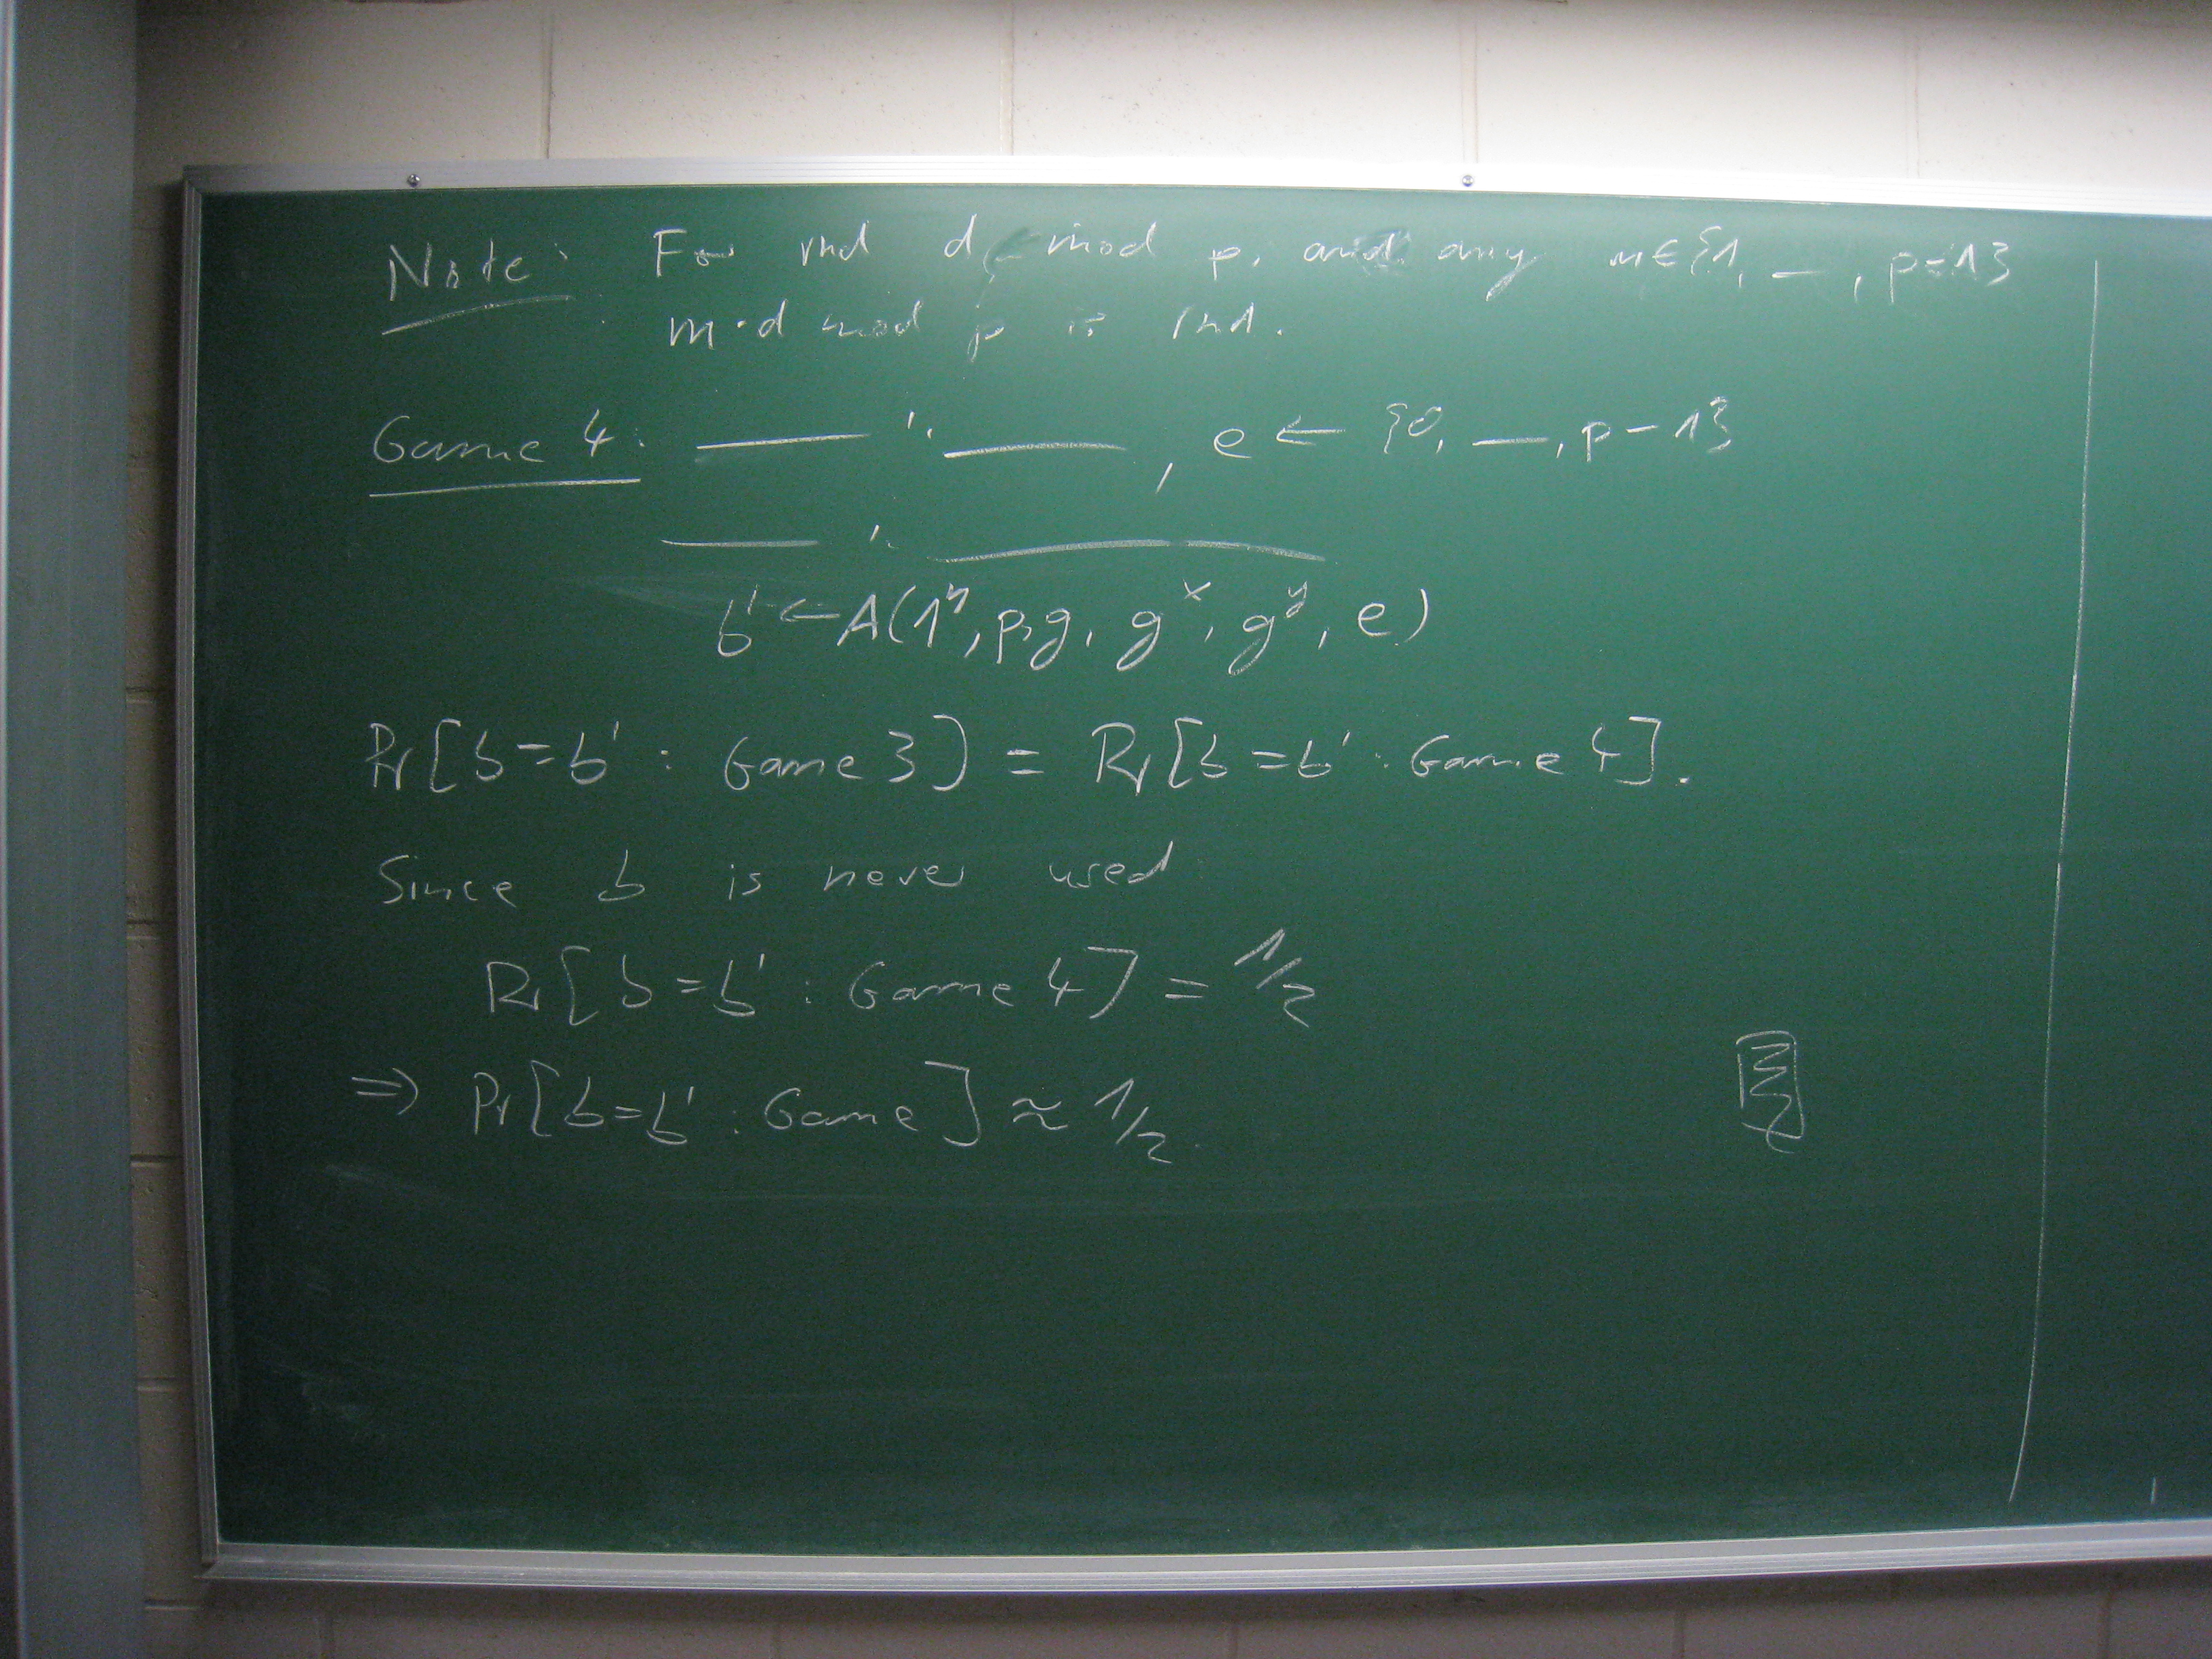 Note: For rnd d mod p, and any m ∈ {1, —, p-1}
m·d mod p is rnd.
Game 4: —— '' ——, e ← {0, —, p-1}
—— '' ——
b' ← A(1ⁿ, p, g, gˣ, gʸ, e)
Pr[b=b' : Game 3] = Pr[b=b' : Game 4].
Since b is never used
Pr[b=b' : Game 4] = 1/2
⇒ Pr[b=b' : Game] ≈ 1/2.